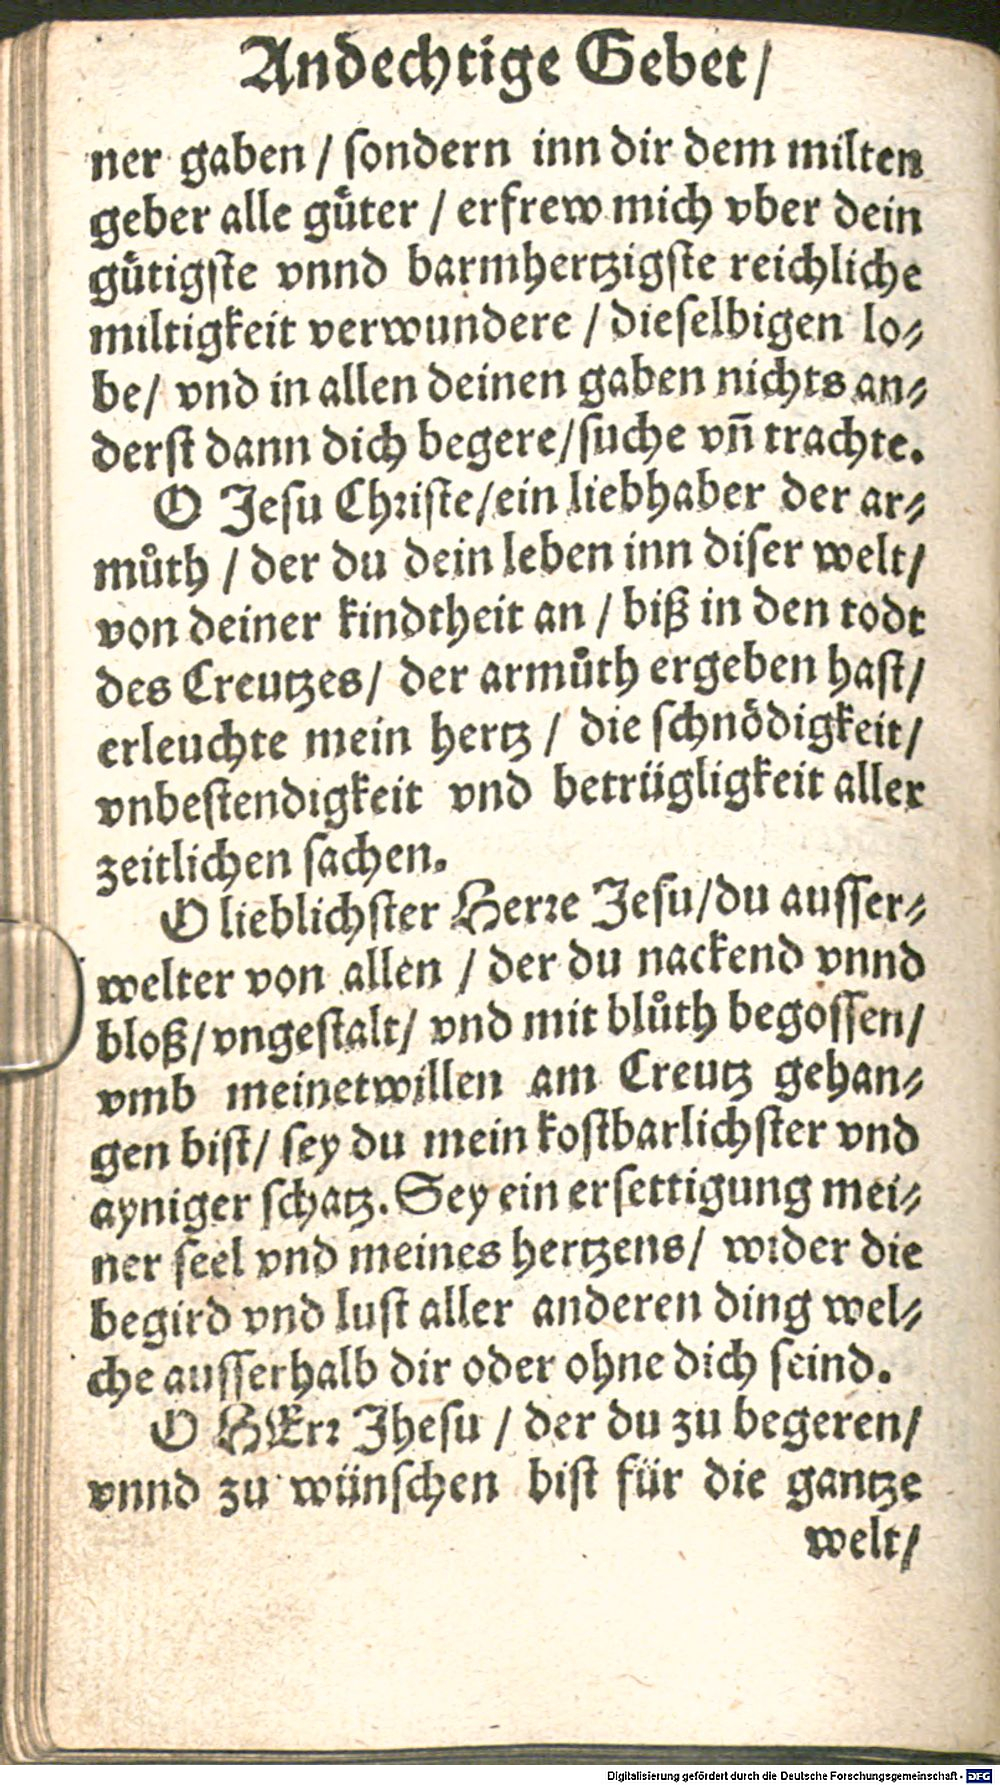 Andechtige Gebet/
ner gaben / ſondern inn dir dem milten
geber alle guͤter / erfrew mich vber dein
guͤtigſte vnnd barmhertzigſte reichliche
miltigkeit verwundere / dieſelbigen lo⸗
be/ vnd in allen deinen gaben nichts an⸗
derſt dann dich begere/ſuche vñ trachte.
O Jeſu Chꝛiſte/ein liebhaber der ar⸗
muͦth / der du dein leben inn diſer welt/
von deiner kindtheit an / biß in den todt
des Creutzes/ der armuͦth ergeben haſt/
erleuchte mein hertz / die ſchnoͤdigkeit/
vnbeſtendigkeit vnd betrügligkeit aller
zeitlichen ſachen.
O lieblichſter Herꝛe Jeſu/du auſſer⸗
welter von allen / der du nackend vnnd
bloß/vngeſtalt/ vnd mit bluͦth begoſſen/
vmb meinetwillen am Creutz gehan⸗
gen biſt/ ſey du mein koſtbarlichſter vnd
ayniger ſchatz. Sey ein erſettigung mei⸗
ner ſeel vnd meines hertzens/ wider die
begird vnd luſt aller anderen ding wel⸗
che auſſerhalb dir oder ohne dich ſeind.
O HErꝛ Jheſu / der du zu begeren/
vnnd zu wünſchen biſt für die gantze
welt/
Digitalisierung gefördert durch die Deutsche Forschungsgemeinschaft - DFG